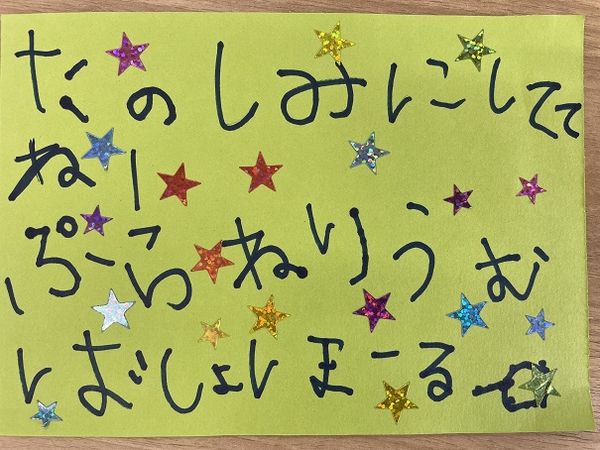 たのしみにしてて
ねー
ぷらねりうむ
ばしょほーる